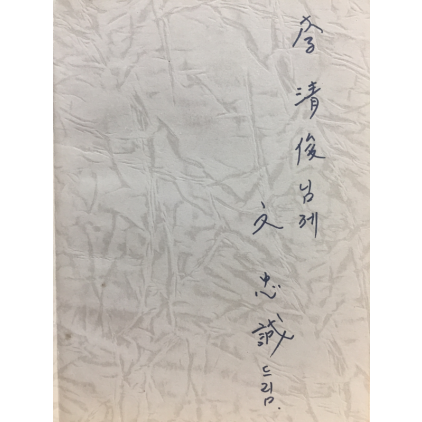 李清俊님께
文忠誠드림.